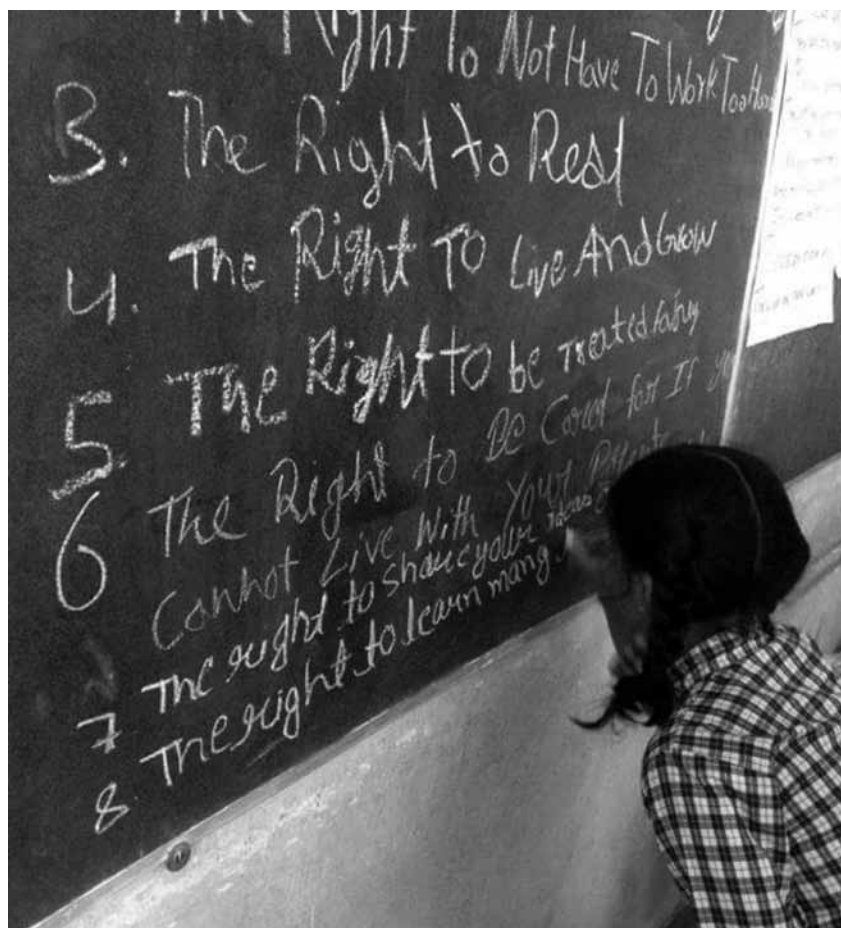 The Right To Not Have To Work Too Hard
3. The Right to Rest
4. The Right To Live And Grow
5 The Right to be Treated fairly
6 The Right to Be Cared for If you
Cannot Live With Your Parents
7 The right to share your ideas
8. The right to learn many